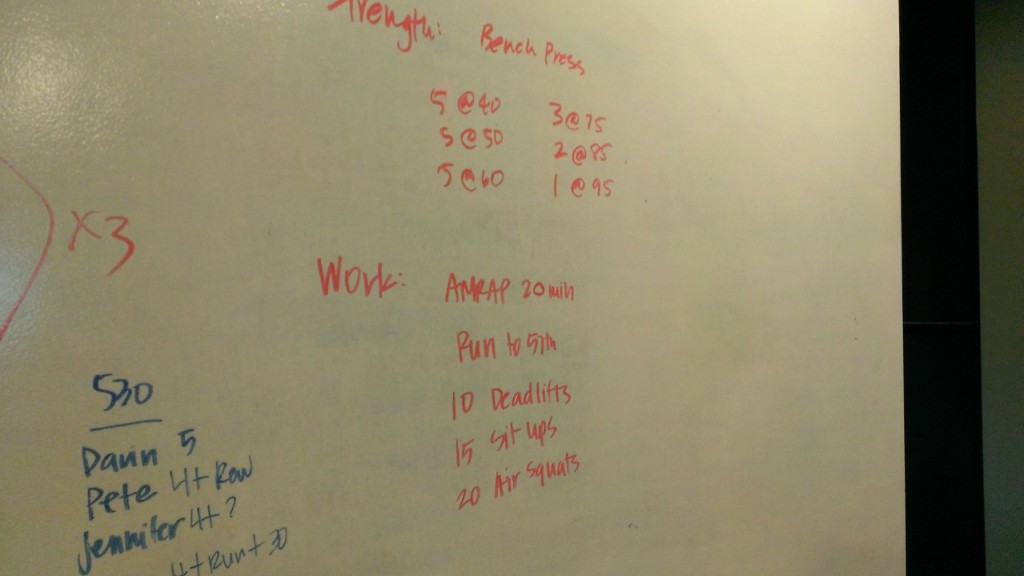 trength: Bench Press
5 @ 40 3 @ 75
5 @ 50 2 @ 85
5 @ 60 1 @ 95
X 3
Work: AMRAP 20 min
Run to 57th
10 Deadlifts
15 Sit ups
20 Air Squats
530
Darin 5
Pete 4+ Row
Jennifer 4+ ?
4+Run+30